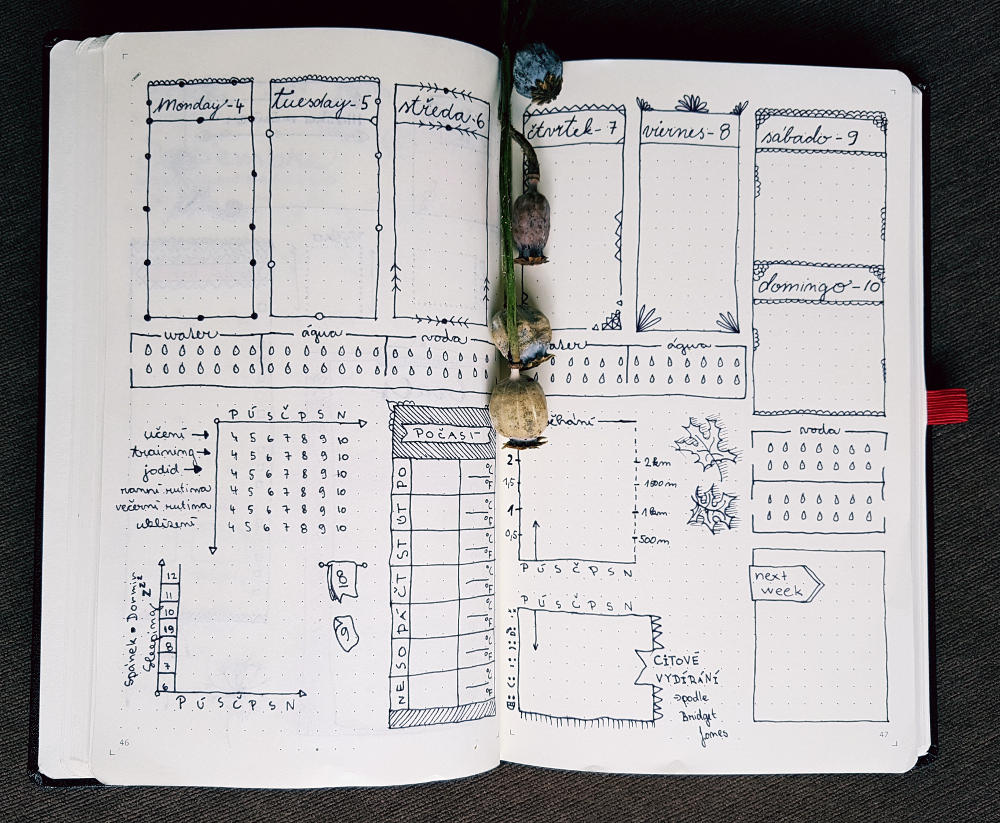 Monday-4
tuesday-5
středa-6
čtvrtek-7
viernes-8
sábado-9
domingo-10
water
água
voda
água
voda
P Ú S Č P S N
učení
training
jodid
ranní rutina
večerní rutina
uklízení
4 5 6 7 8 9 10
4 5 6 7 8 9 10
4 5 6 7 8 9 10
4 5 6 7 8 9 10
4 5 6 7 8 9 10
4 5 6 7 8 9 10
Spánek • Dormir
Sleeping
zzz
12
11
10
9
8
7
6
P Ú S Č P S N
9
POČASÍ
PO
°C
°F
ÚT
°C
°F
ST
°C
°F
ČT
°C
°F
PÁ
°C
°F
SO
°C
°F
NE
°C
°F
2
1,5
1
0,5
2km
1500m
1km
500m
P Ú S Č P S N
P Ú S Č P S N
CITOVÉ
VYDÍRÁNÍ
podle
Bridget
Jones
next
week
46
47